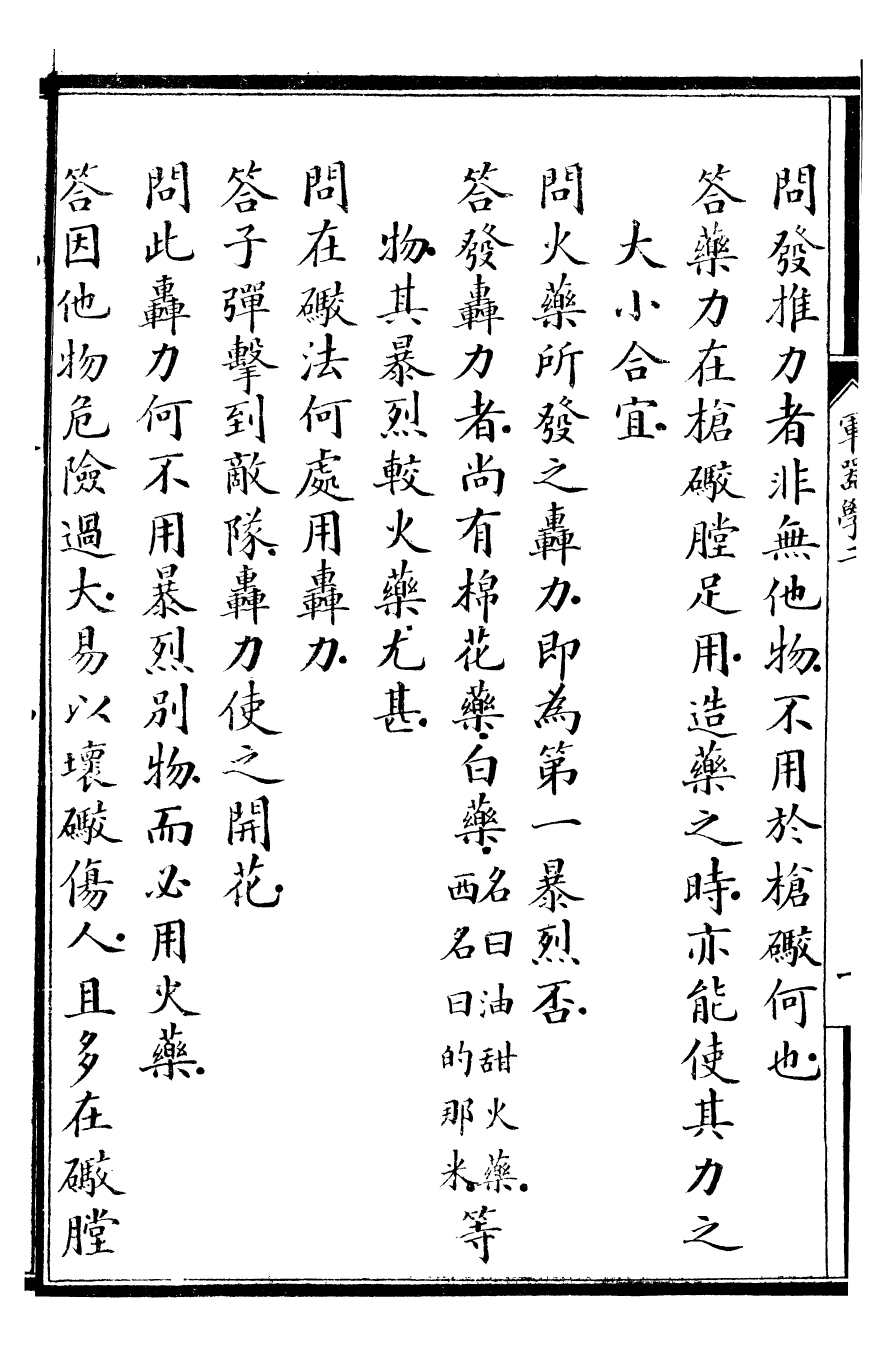 軍器學二
一
問發推力者非無他物、不用於槍礮何也。
答藥力在槍礮膛足用。造藥之時。亦能使其力之
大小合宜。
問火藥所發之轟力。即為第一暴烈否。
答發轟力者。尚有棉花藥。白藥。名曰油甜火藥。西名曰的那米。等
物。其暴烈較火藥尤甚。
問在礮法何處用轟力。
答子彈擊到敵隊、轟力使之開花。
問此轟力何不用暴烈別物、而必用火藥。
答因他物危險過大。易以壞礮傷人。且多在礮膛